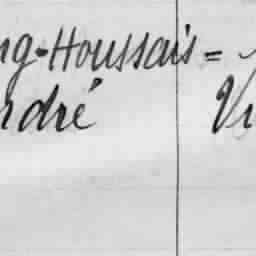 ng-Houssais =
ndré Vi